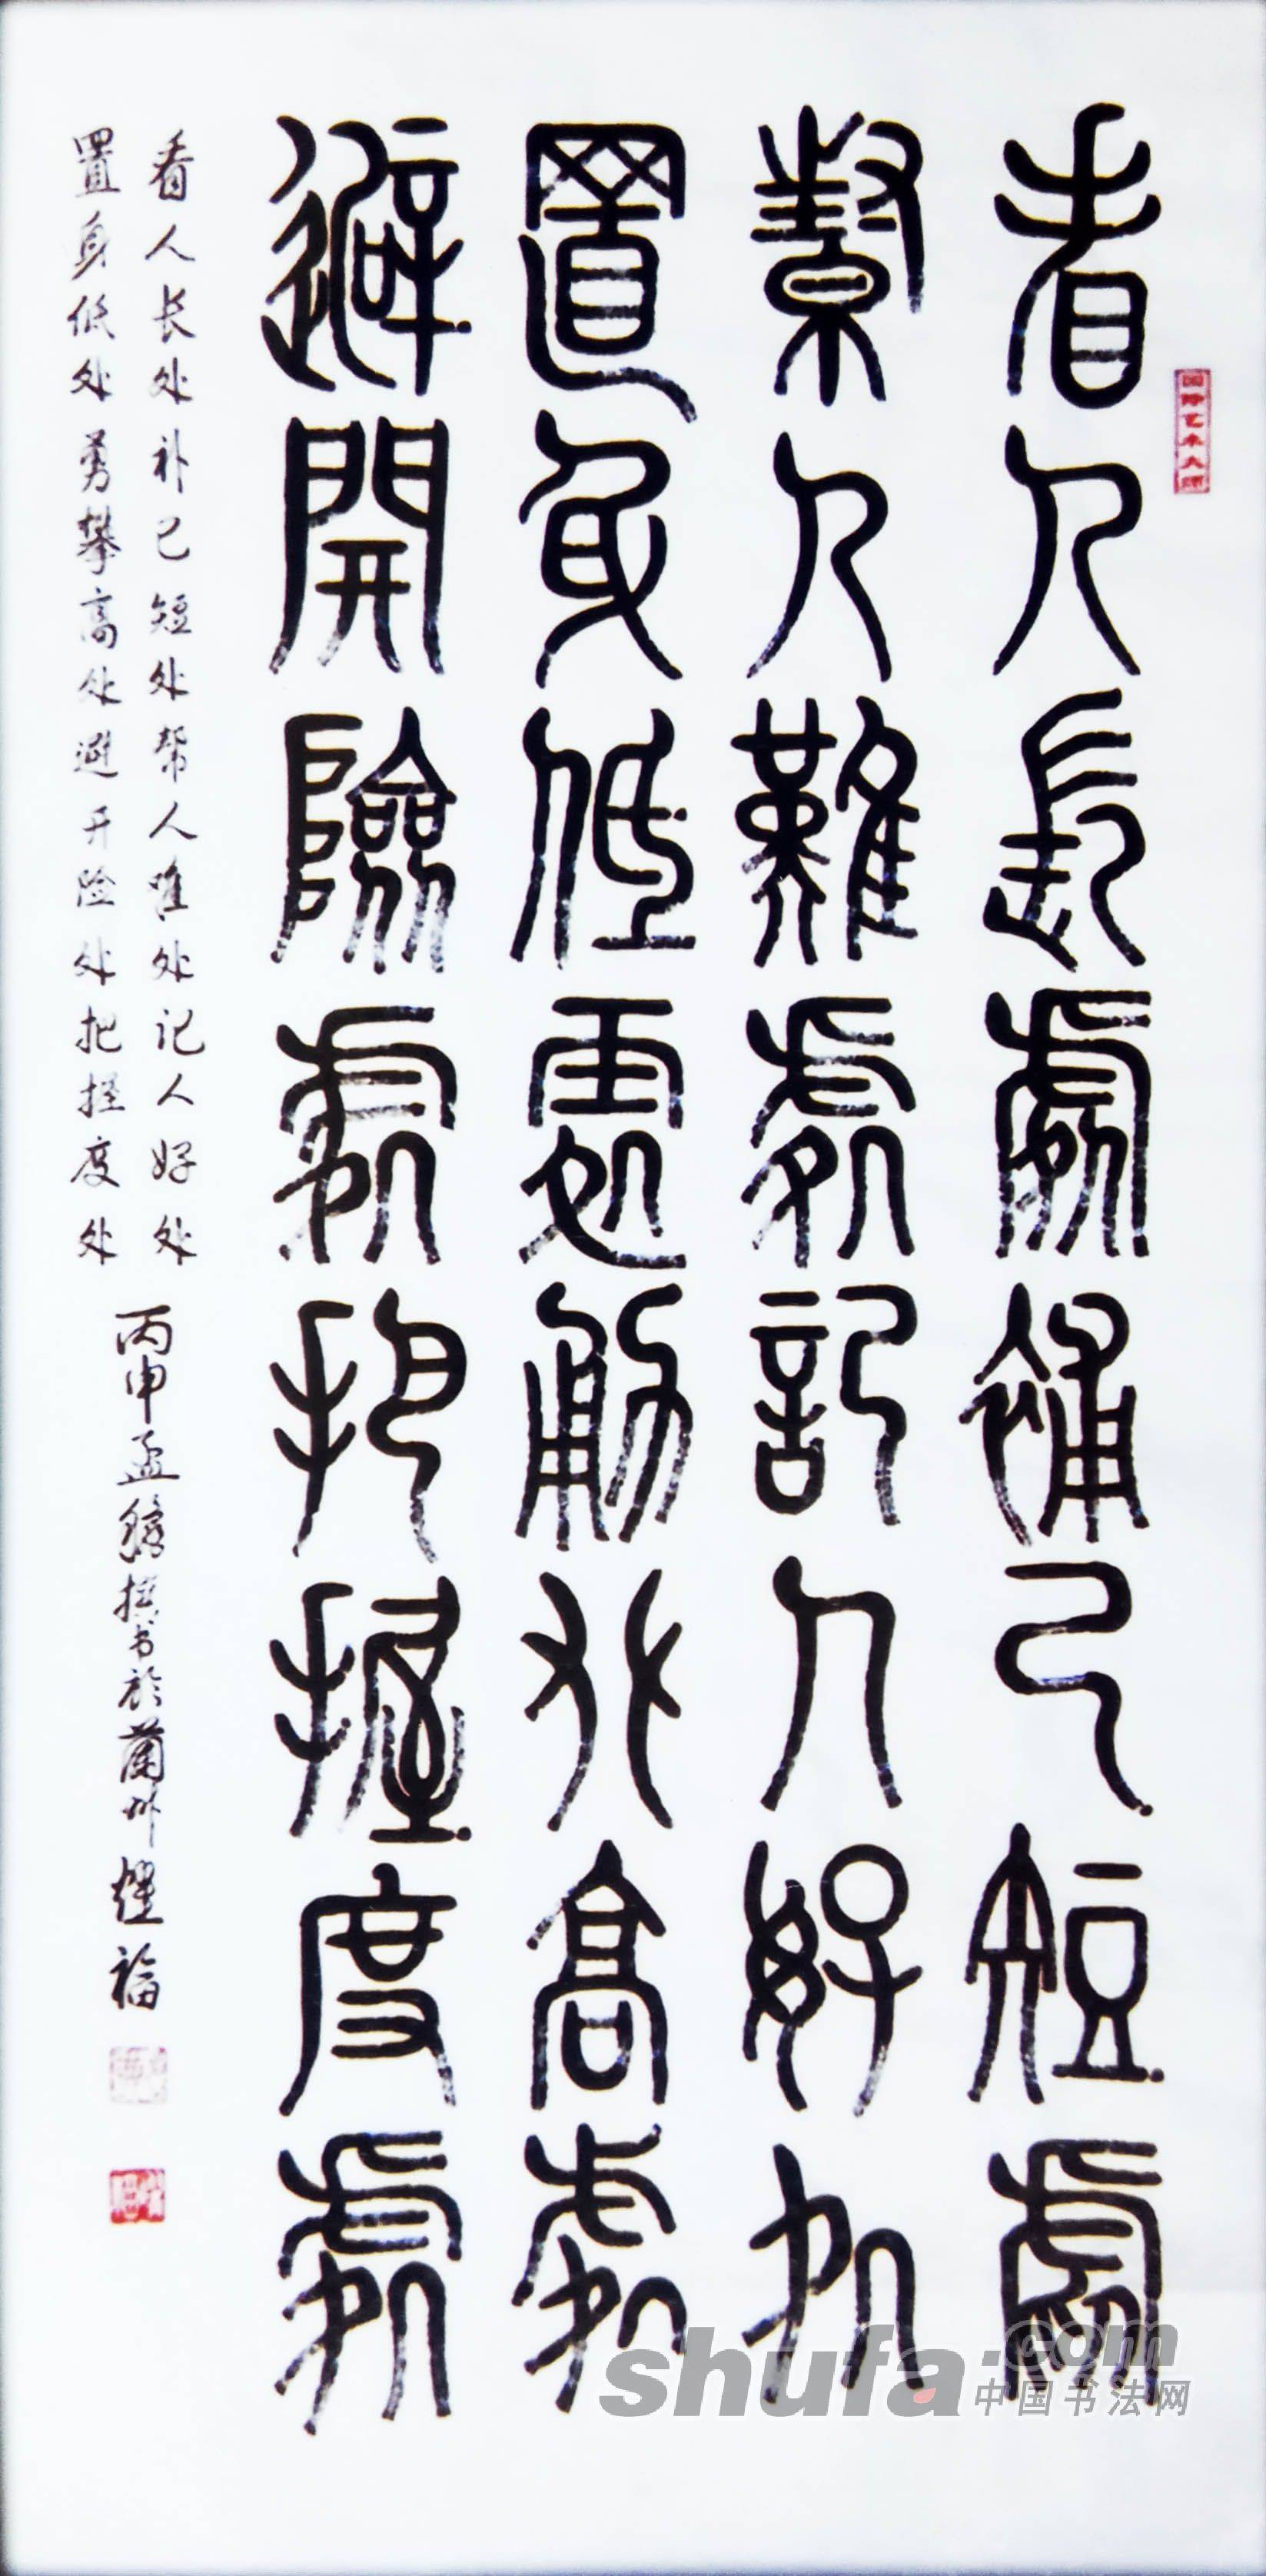 看人長處補己短處
幫人難處記人好處
置身低處勇攀高處
避開險處把握度處
看人长处补己短处帮人难处记人好处
置身低处勇攀高处避开险处把握度处
丙申孟秋撰书於蘭州耀福
國际艺术大师
shufa.com
中国书法网